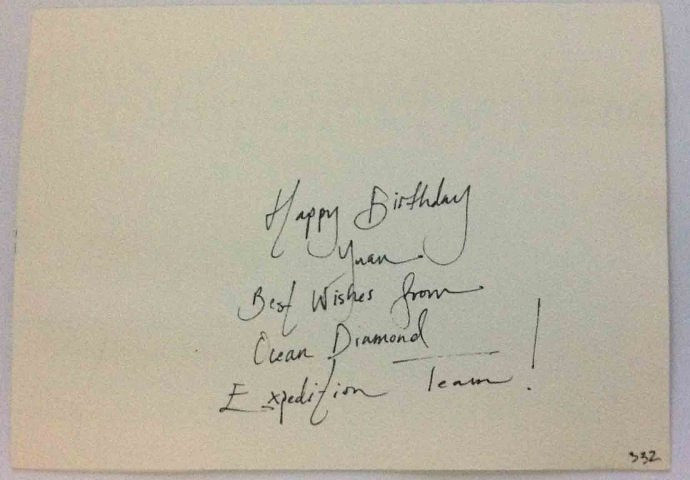 Happy Birthday
Yuan.
Best Wishes from
Ocean Diamond
Expedition Team!
332